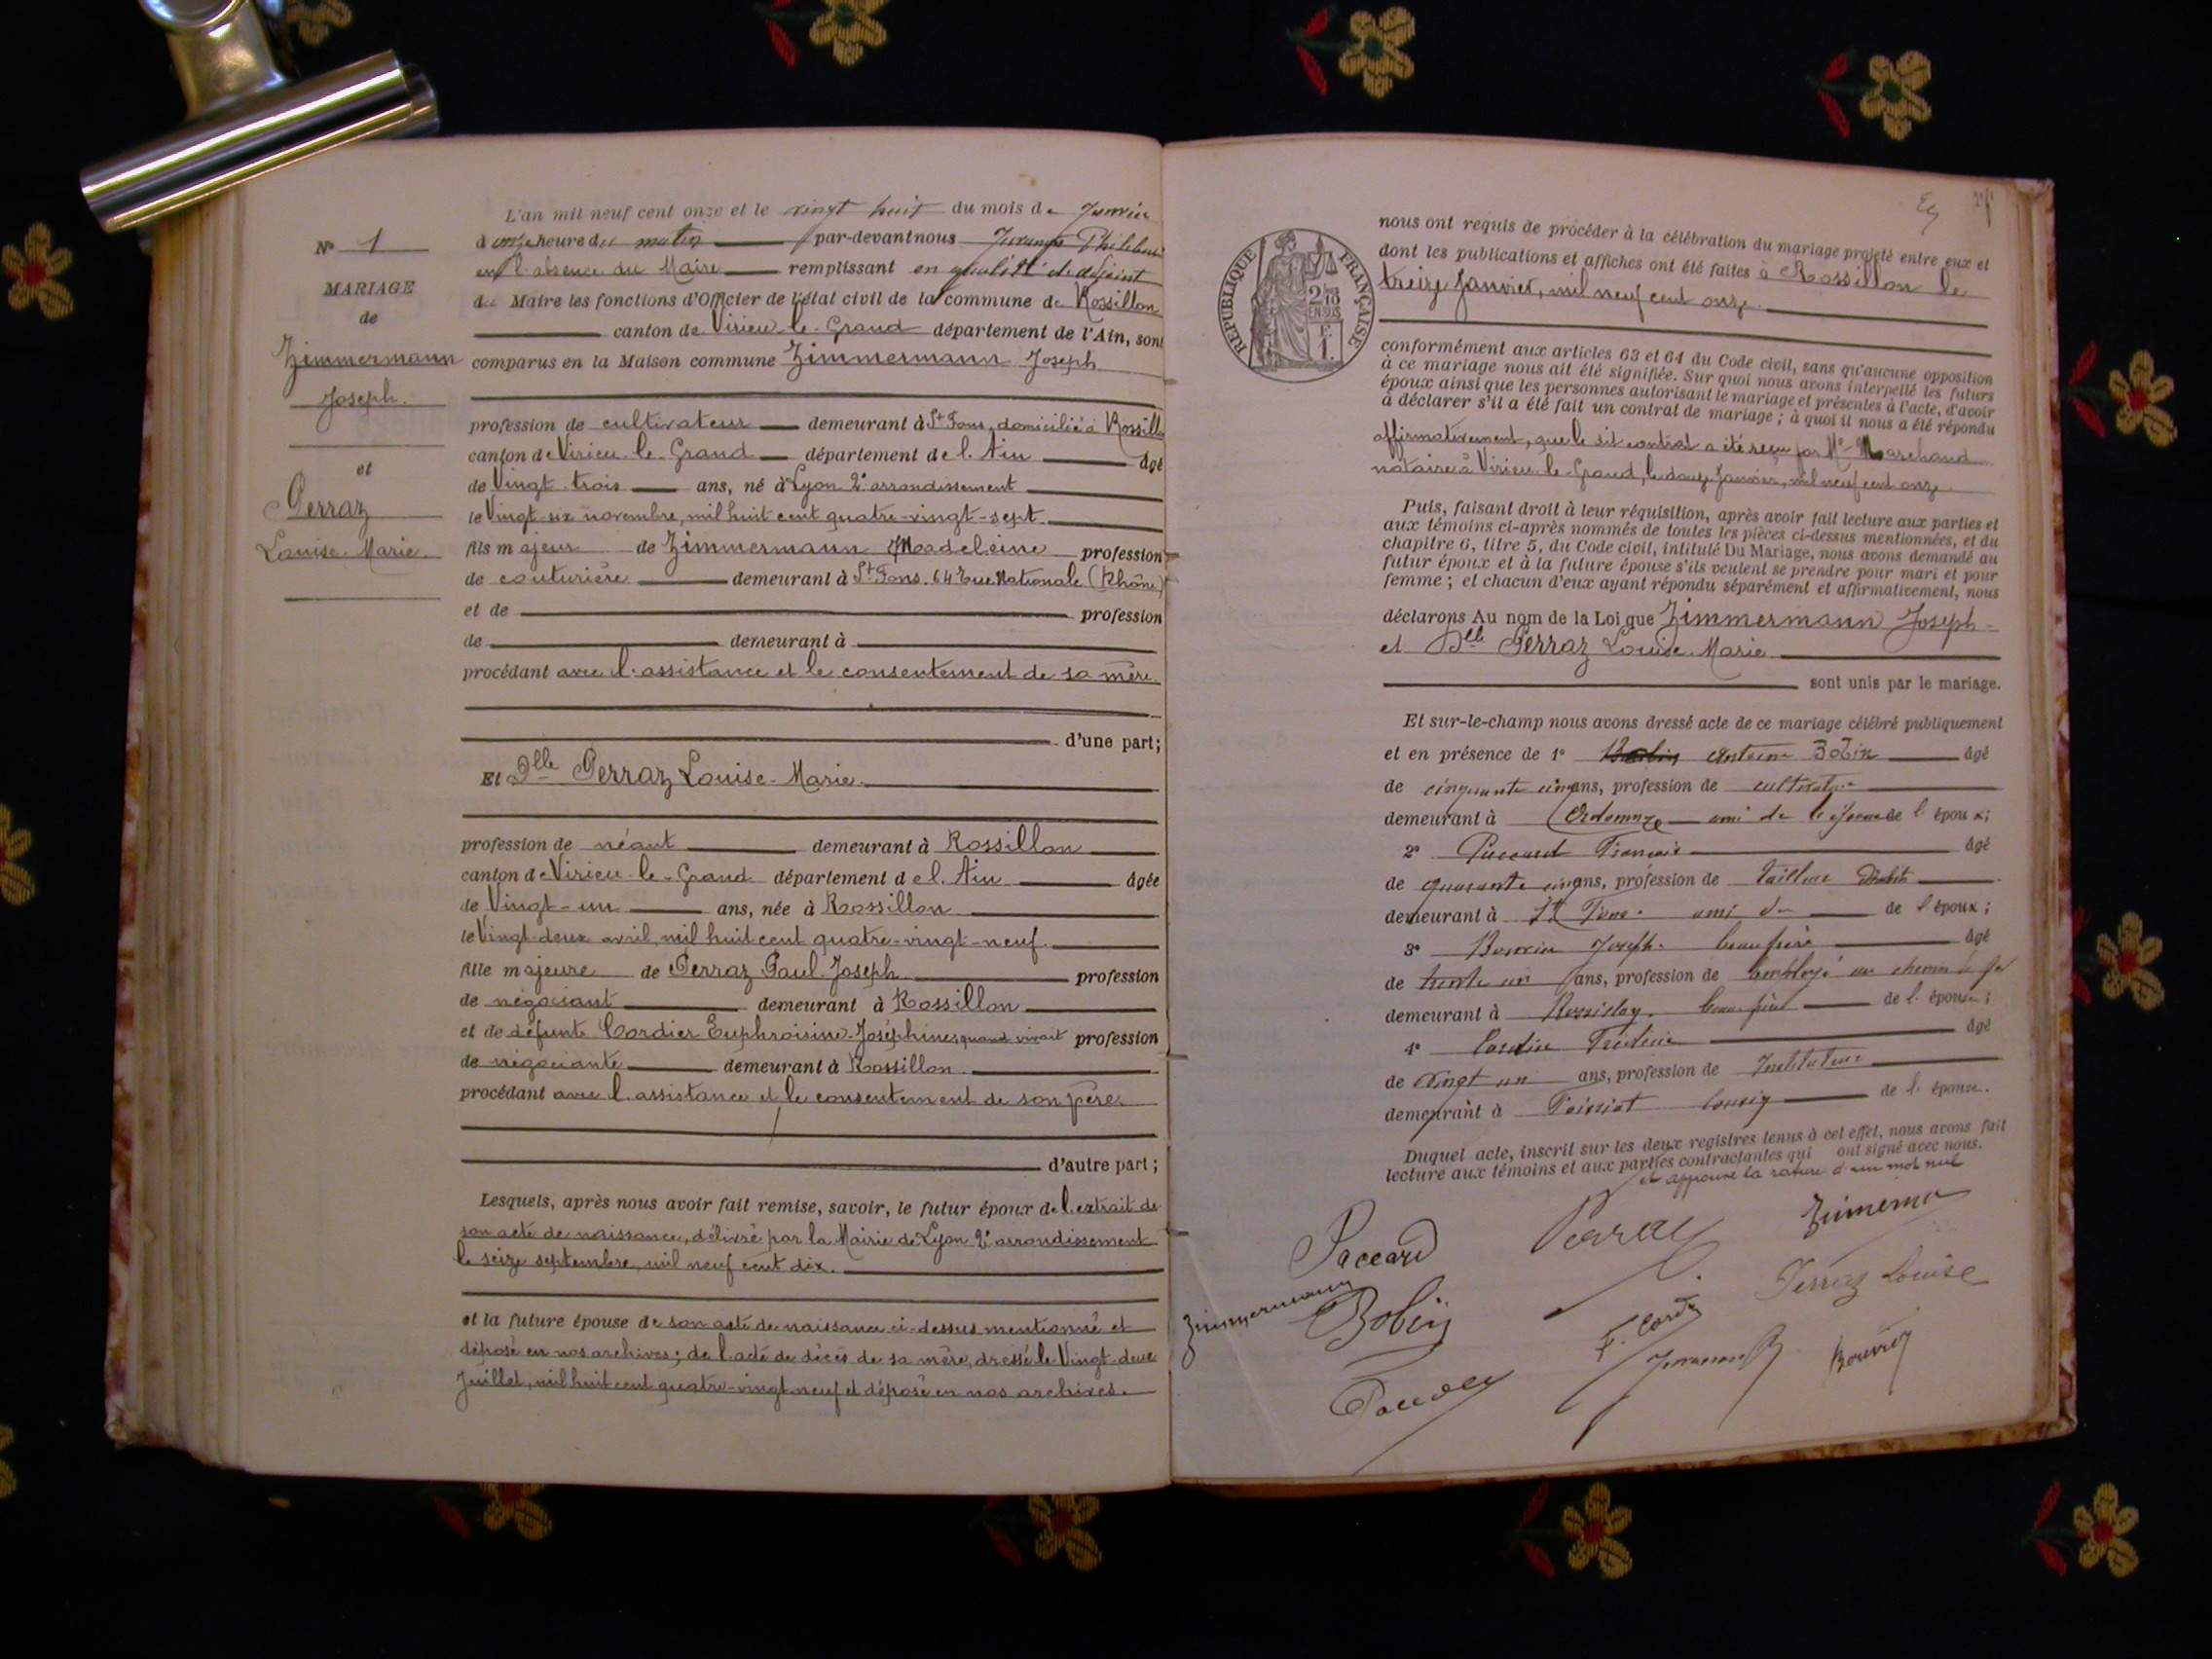 L'an mil neuf cent onze et le vingt huit du mois de Janvier
à onze heure du matin par-devant nous
en l'absence du Maire remplissant en qualité d'adjoint
du Maire les fonctions d'Officier de l'état civil de la commune de Rossillon
canton de Virieu-le-Grand département de l'Ain, sont
comparus en la Maison commune Zimmermann Joseph
profession de cultivateur demeurant à St Fons, domicilié à Rossillon
canton de Virieu-le-Grand département de l'Ain âgé
de Vingt-trois ans, né à Lyon 2e arrondissement
le Vingt-six novembre, mil huit cent quatre-vingt-sept.
fils majeur de Zimmermann Madeleine profession
de couturière demeurant à St Fons. 64 rue Nationale (Rhône)
et de profession
de demeurant à
procédant avec l'assistance et le consentement de sa mère
d'une part;
Et Dlle Perraz Louise-Marie.
profession de néant demeurant à Rossillon
canton de Virieu-le-Grand département de l'Ain âgée
de Vingt-un ans, née à Rossillon
le Vingt-deux avril, mil huit cent quatre-vingt-neuf.
fille majeure de Perraz Paul-Joseph profession
de négociant demeurant à Rossillon
et de défunte Cordier Euphroisine-Joséphine, quand vivait profession
de négociante demeurant à Rossillon.
procédant avec l'assistance et le consentement de son père
d'autre part;
Lesquels, après nous avoir fait remise, savoir, le futur époux de l'extrait de
son acte de naissance, délivré par la Mairie de Lyon 2e arrondissement
le seize septembre, mil neuf cent dix.
et la future épouse de son acte de naissance ci-dessus mentionné et
déposé en nos archives; de l'acte de décès de sa mère, dressé le Vingt-deux
Juillet, mil huit cent quatre-vingt-neuf et déposé en nos archives.
N° 1
MARIAGE
de
Zimmermann
Joseph.
et
Perraz
Louise-Marie.
RÉPUBLIQUE FRANÇAISE
2/10
EN SUS
F.
1.
nous ont requis de procéder à la célébration du mariage projeté entre eux et
dont les publications et affiches ont été faites à Rossillon le
treize Janvier, mil neuf cent onze.
conformément aux articles 63 et 64 du Code civil, sans qu'aucune opposition
à ce mariage nous ait été signifiée. Sur quoi nous avons interpellé les futurs
époux ainsi que les personnes autorisant le mariage et présentes à l'acte, d'avoir
à déclarer s'il a été fait un contrat de mariage; à quoi il nous a été répondu
affirmativement, que le dit contrat a été reçu par Me Marchand
notaire à Virieu-le-Grand, le douze Janvier, mil neuf cent onze.
Puis, faisant droit à leur réquisition, après avoir fait lecture aux parties et
aux témoins ci-après nommés de toutes les pièces ci-dessus mentionnées, et du
chapitre 6, titre 5, du Code civil, intitulé Du Mariage, nous avons demandé au
futur époux et à la future épouse s'ils veulent se prendre pour mari et pour
femme; et chacun d'eux ayant répondu séparément et affirmativement, nous
déclarons Au nom de la Loi que Zimmermann Joseph
et Dlle Perraz Louise-Marie
sont unis par le mariage.
Et sur-le-champ nous avons dressé acte de ce mariage célébré publiquement
et en présence de 1° Antoine Bobin âgé
de cinquante cinq ans, profession de cultivateur
demeurant à ami de de l'époux;
2° Paccard François âgé
de quarante cinq ans, profession de tailleur
demeurant à St Fons. ami de de l'époux;
3° Joseph. beau frère âgé
de trente un ans, profession de employé au chemin de fer
demeurant à Rossillon. beau frère de l'épouse;
4° Cordier âgé
de vingt un ans, profession de Instituteur
demeurant à cousin de l'épouse.
Duquel acte, inscrit sur les deux registres tenus à cet effet, nous avons fait
lecture aux témoins et aux parties contractantes qui ont signé avec nous.
et approuvé la rature d'un mot nul
Paccard Perraz
Zimmermann Perraz Louise
Bobin F. Cordier